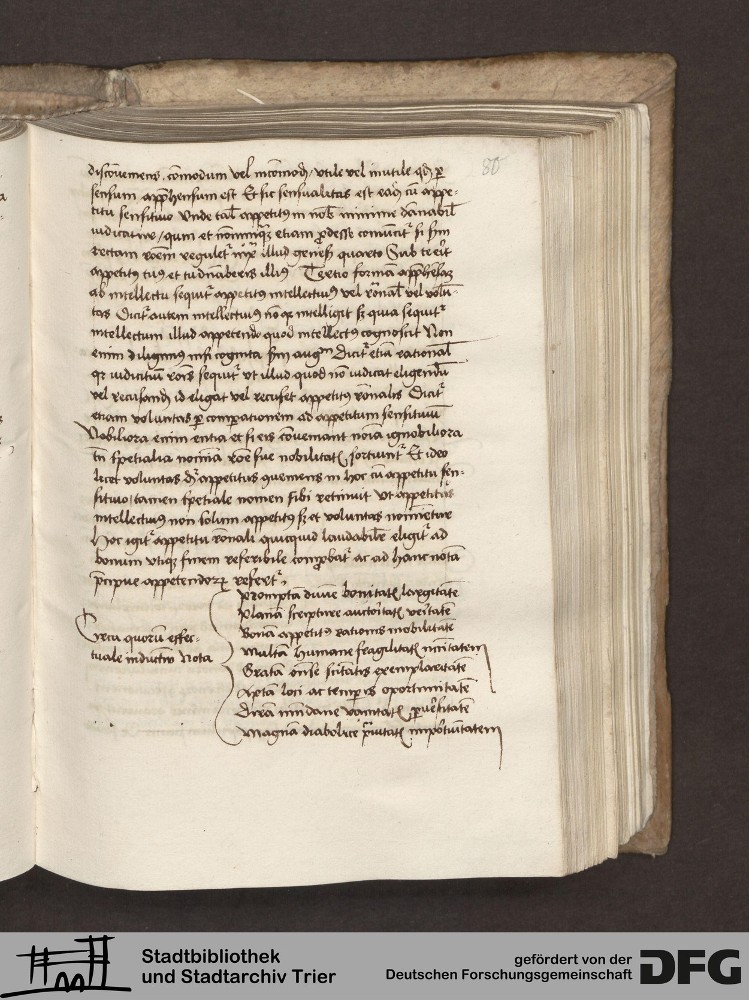 86
disconueniens, comodum vel incomodũ, vtile vel inutile qđ p
sensum apprhensum est Et sic sensualitas est eadẽ cũ appe-
titu sensitiuo Vnde tal appetitus in nob minime dãnabil
iudicatur, qum et nonnunqz etiam prodesse comicit si scm
rectam roẽm reguletur iuxta illud genesis quarto Sub te erit
appetitus tuus et tu dñaberis illius Tertio formã apprhensaz
ab intellectu sequitur appetitus intellectiuus vel rõnal vel volũ-
tas Dicitur autem intellectiuus nõ qr intelligit sz quia sequitur
intellectum illud appetendo quod intellectus cognoscit Non
enim diligimus nisi cognita scm augm Dicitur etiã rational
qr iudicium rõis sequitur vt illud quod nõ iudicat eligendũ
vel recusandũ id eligat vel recuset appetitus rõnalis Dicitur
etiam voluntas p comparationem ad appetitum sensitiuũ
Nobiliora enim entia et si eis conueniant noĩa ignobiliora
tñ spetialia nomina rõe sue nobilitatis sortiuntur Et ideo
licet voluntas dr appetitus conueniens in hoc cũ appetitu sen-
sitiuo, tamen spetiale nomen sibi retinuit Vt appetitus
intellectiuus non solum appetitus sz et voluntas nominetur
Hoc igitur appetitu rõnali quicquid laudabile eligitur ad
bonum vtiqz finem referibile comprobatur ac ad hanc notã
precipue appetendorz refertur,
Circa quorũ effec-
tuale inductiõ Nota
promptã diuine bonitatis largitatẽ
Planã scripture auctoritatis veritatẽ
Bonã appetitus rationis nobilitatẽ
Multã humane fragilitatis unitatem
Gratã onise scitatis exemplaritatẽ
Aptã loci ac temporis oportunitatẽ
Dirã mũdane vanitatis puersitatẽ
Magnã diabolice prauitatis importunitatem
Stadtbibliothek
und Stadtarchiv Trier
gefördert von der
Deutschen Forschungsgemeinschaft
DFG